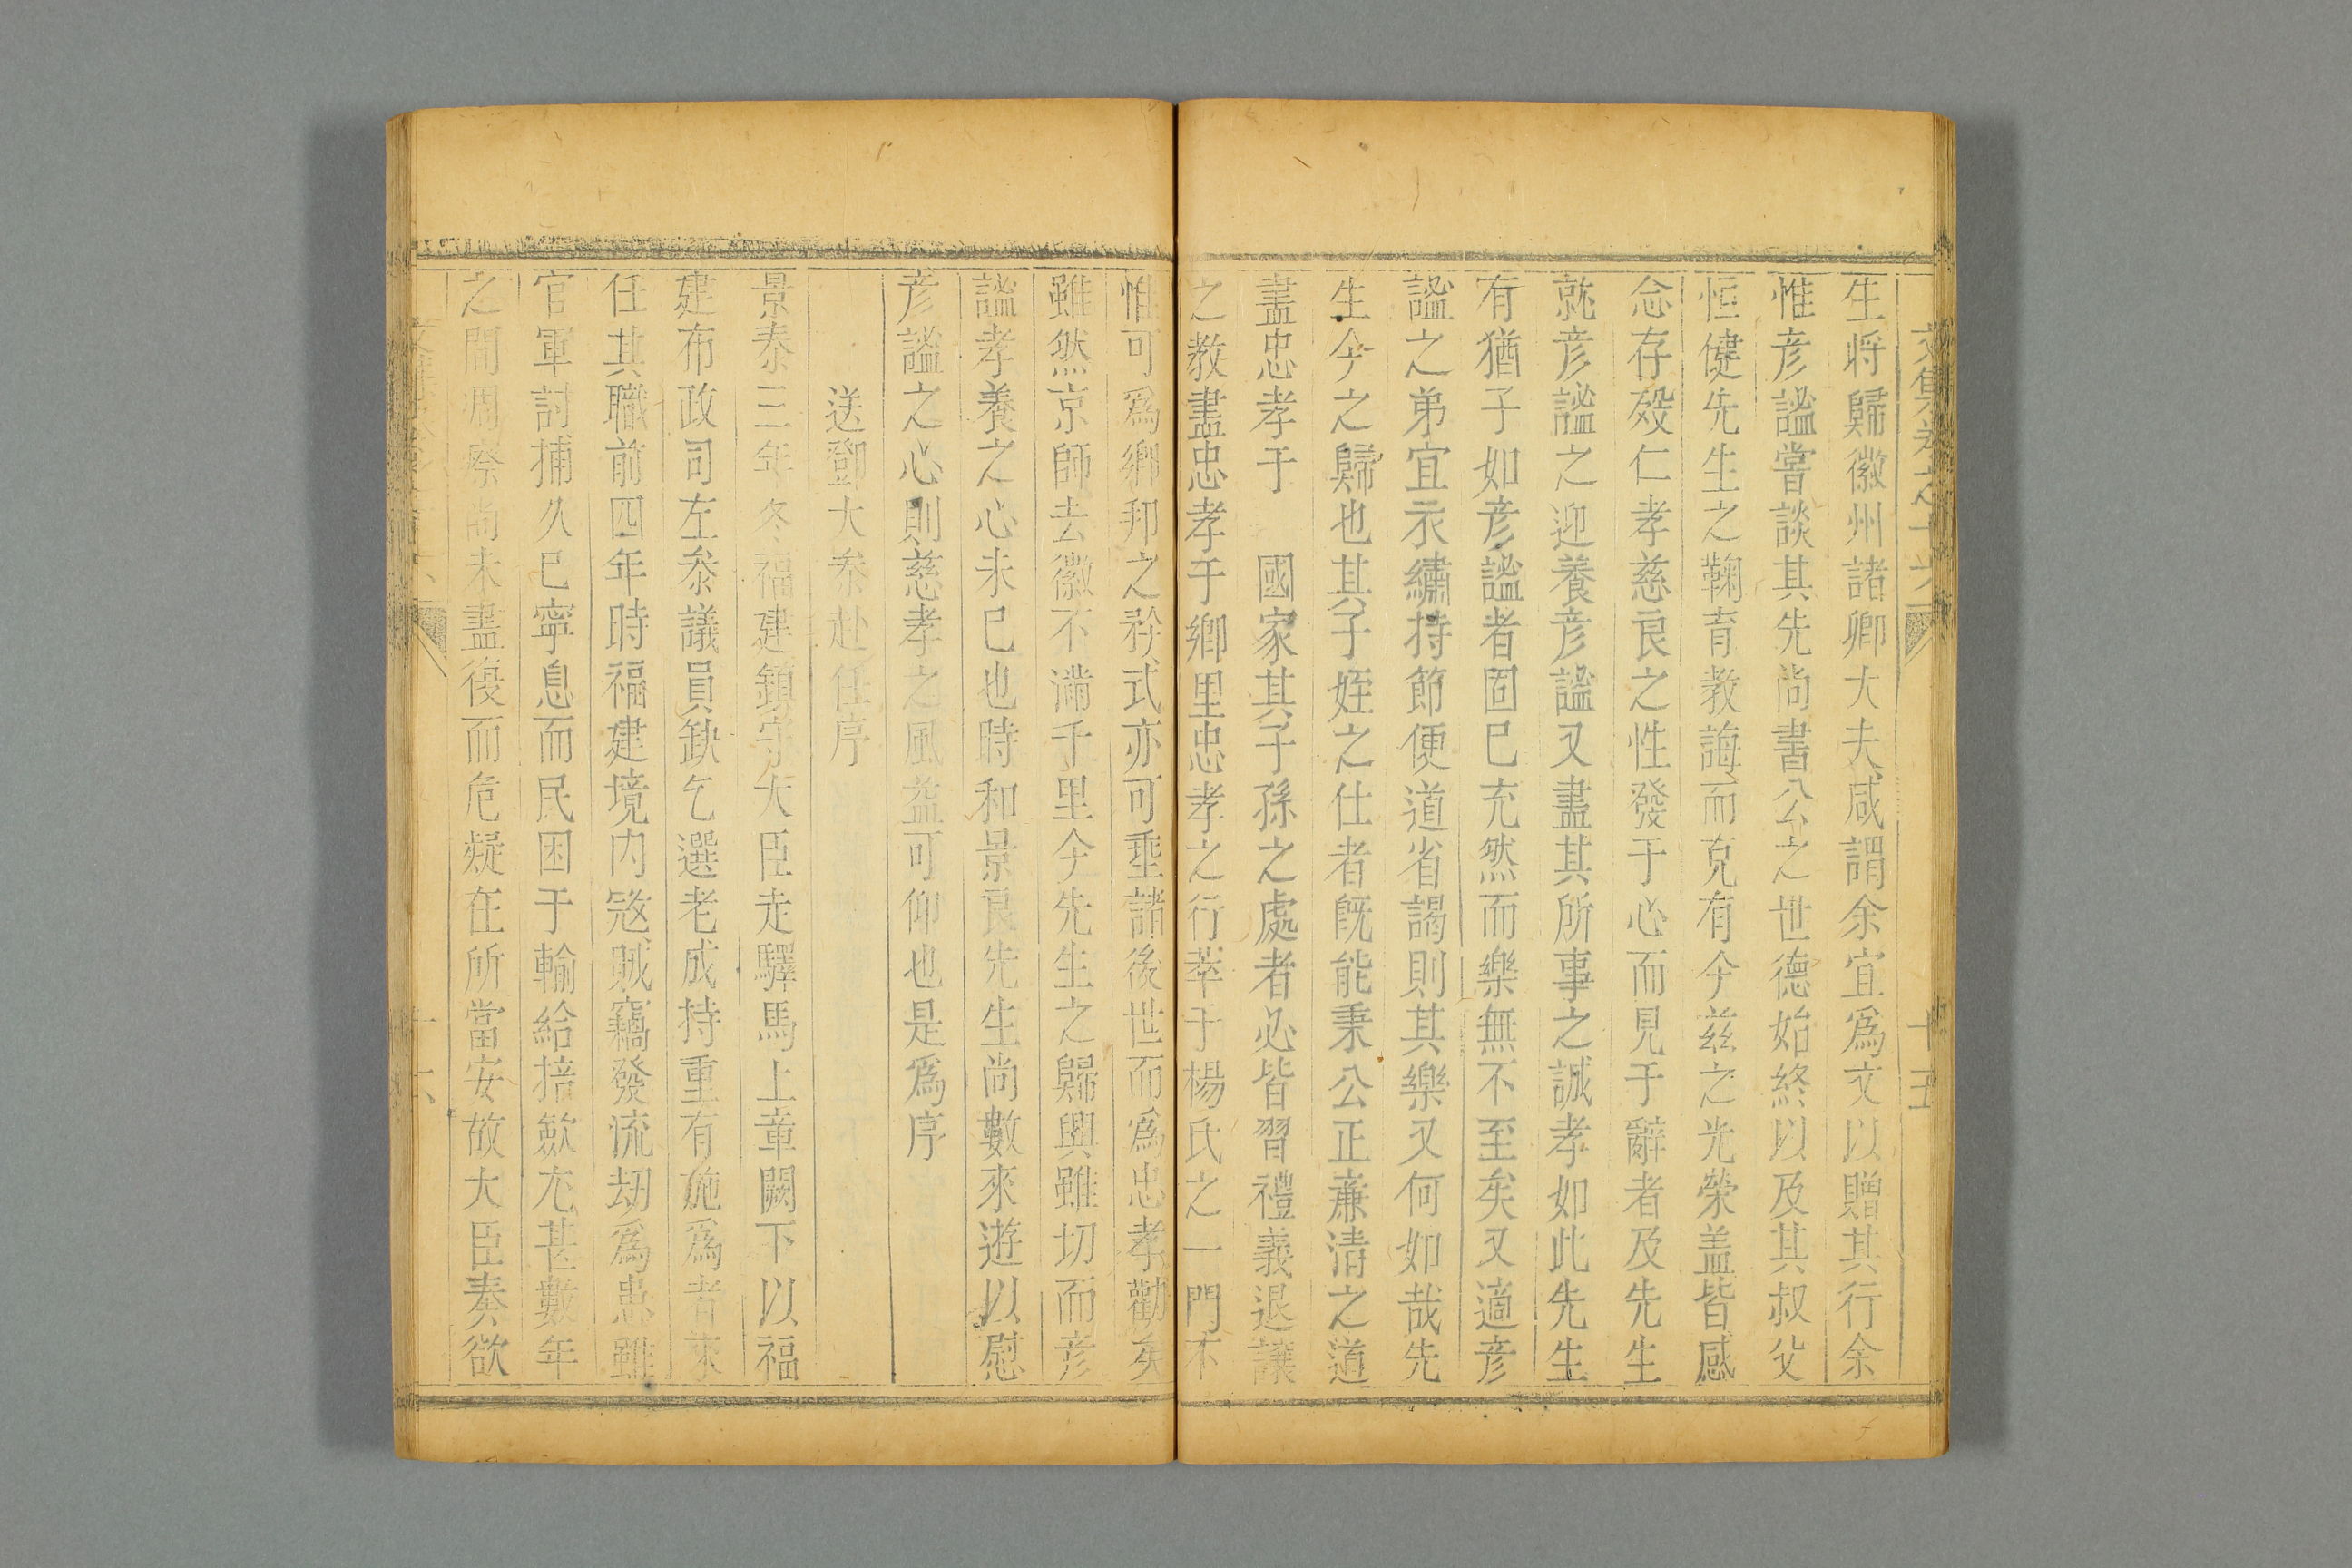 文集卷之十六 十五
生將歸徽州諸卿大夫咸謂余宜爲文以贈其行余
惟彥謐嘗談其先尚書公之世德始終以及其叔父
恒健先生之鞠育教誨而克有今茲之光榮盖皆感
念存殁仁孝慈良之性發于心而見于辭者及先生
就彥謐之迎養彥謐又盡其所事之誠孝如此先生
有猶子如彥謐者固已充然而樂無不至矣又適彥
謐之弟宜衣繡持節便道省謁則其樂又何如哉先
生今之歸也其子姪之仕者旣能秉公正亷清之道
盡忠孝于　國家其子孫之處者必皆習禮義退讓
之教盡忠孝于鄉里忠孝之行萃于楊氏之一門不
惟可爲鄉邦之矜式亦可埀諸後世而爲忠孝勸矣
雖然京師去徽不滿千里今先生之歸興雖切而彥
謐孝養之心未已也時和景良先生尚數來遊以慰
彥謐之心則慈孝之風益可仰也是爲序
送鄧大叅赴任序
景泰三年冬福建鎮守大臣走驛馬上章闕下以福
建布政司左叅議員缺乞選老成持重有施爲者來
任其職前四年時福建境内冦賊竊發流刼爲患雖
官軍討捕久已寧息而民困于輸給掊歛尤甚數年
之間凋瘵尚未盡復而危疑在所當安故大臣奏欲
十六